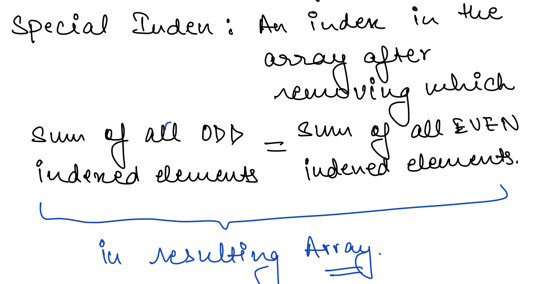 Special Index : An index in the
array after
removing which
Sum of all ODD = Sum of all EVEN
indexed elements indexed elements.
in resulting Array.